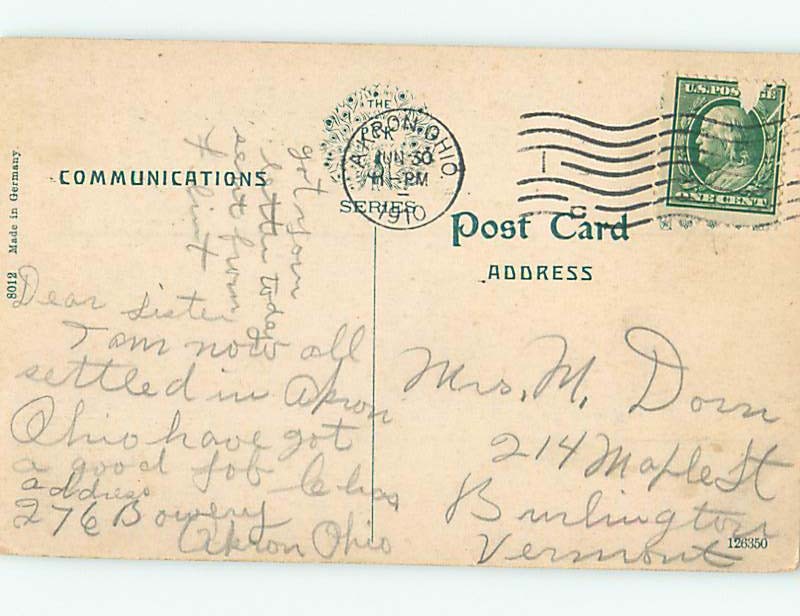 THE
PCK
SERIES
AKRON, OHIO.
JUN 30
PM
1910
U.S. POS
ONE CENT
COMMUNICATIONS
Post Card
ADDRESS
8012 Made in Germany.
got your
letter today
sent from
Flint
Dear Sister
I am now all
settled in Akron
Ohio have got
a good job
address
276 Bowery
Akron Ohio
Mrs. M. Dorn
214 Maple St
Burlington
Vermont
126350